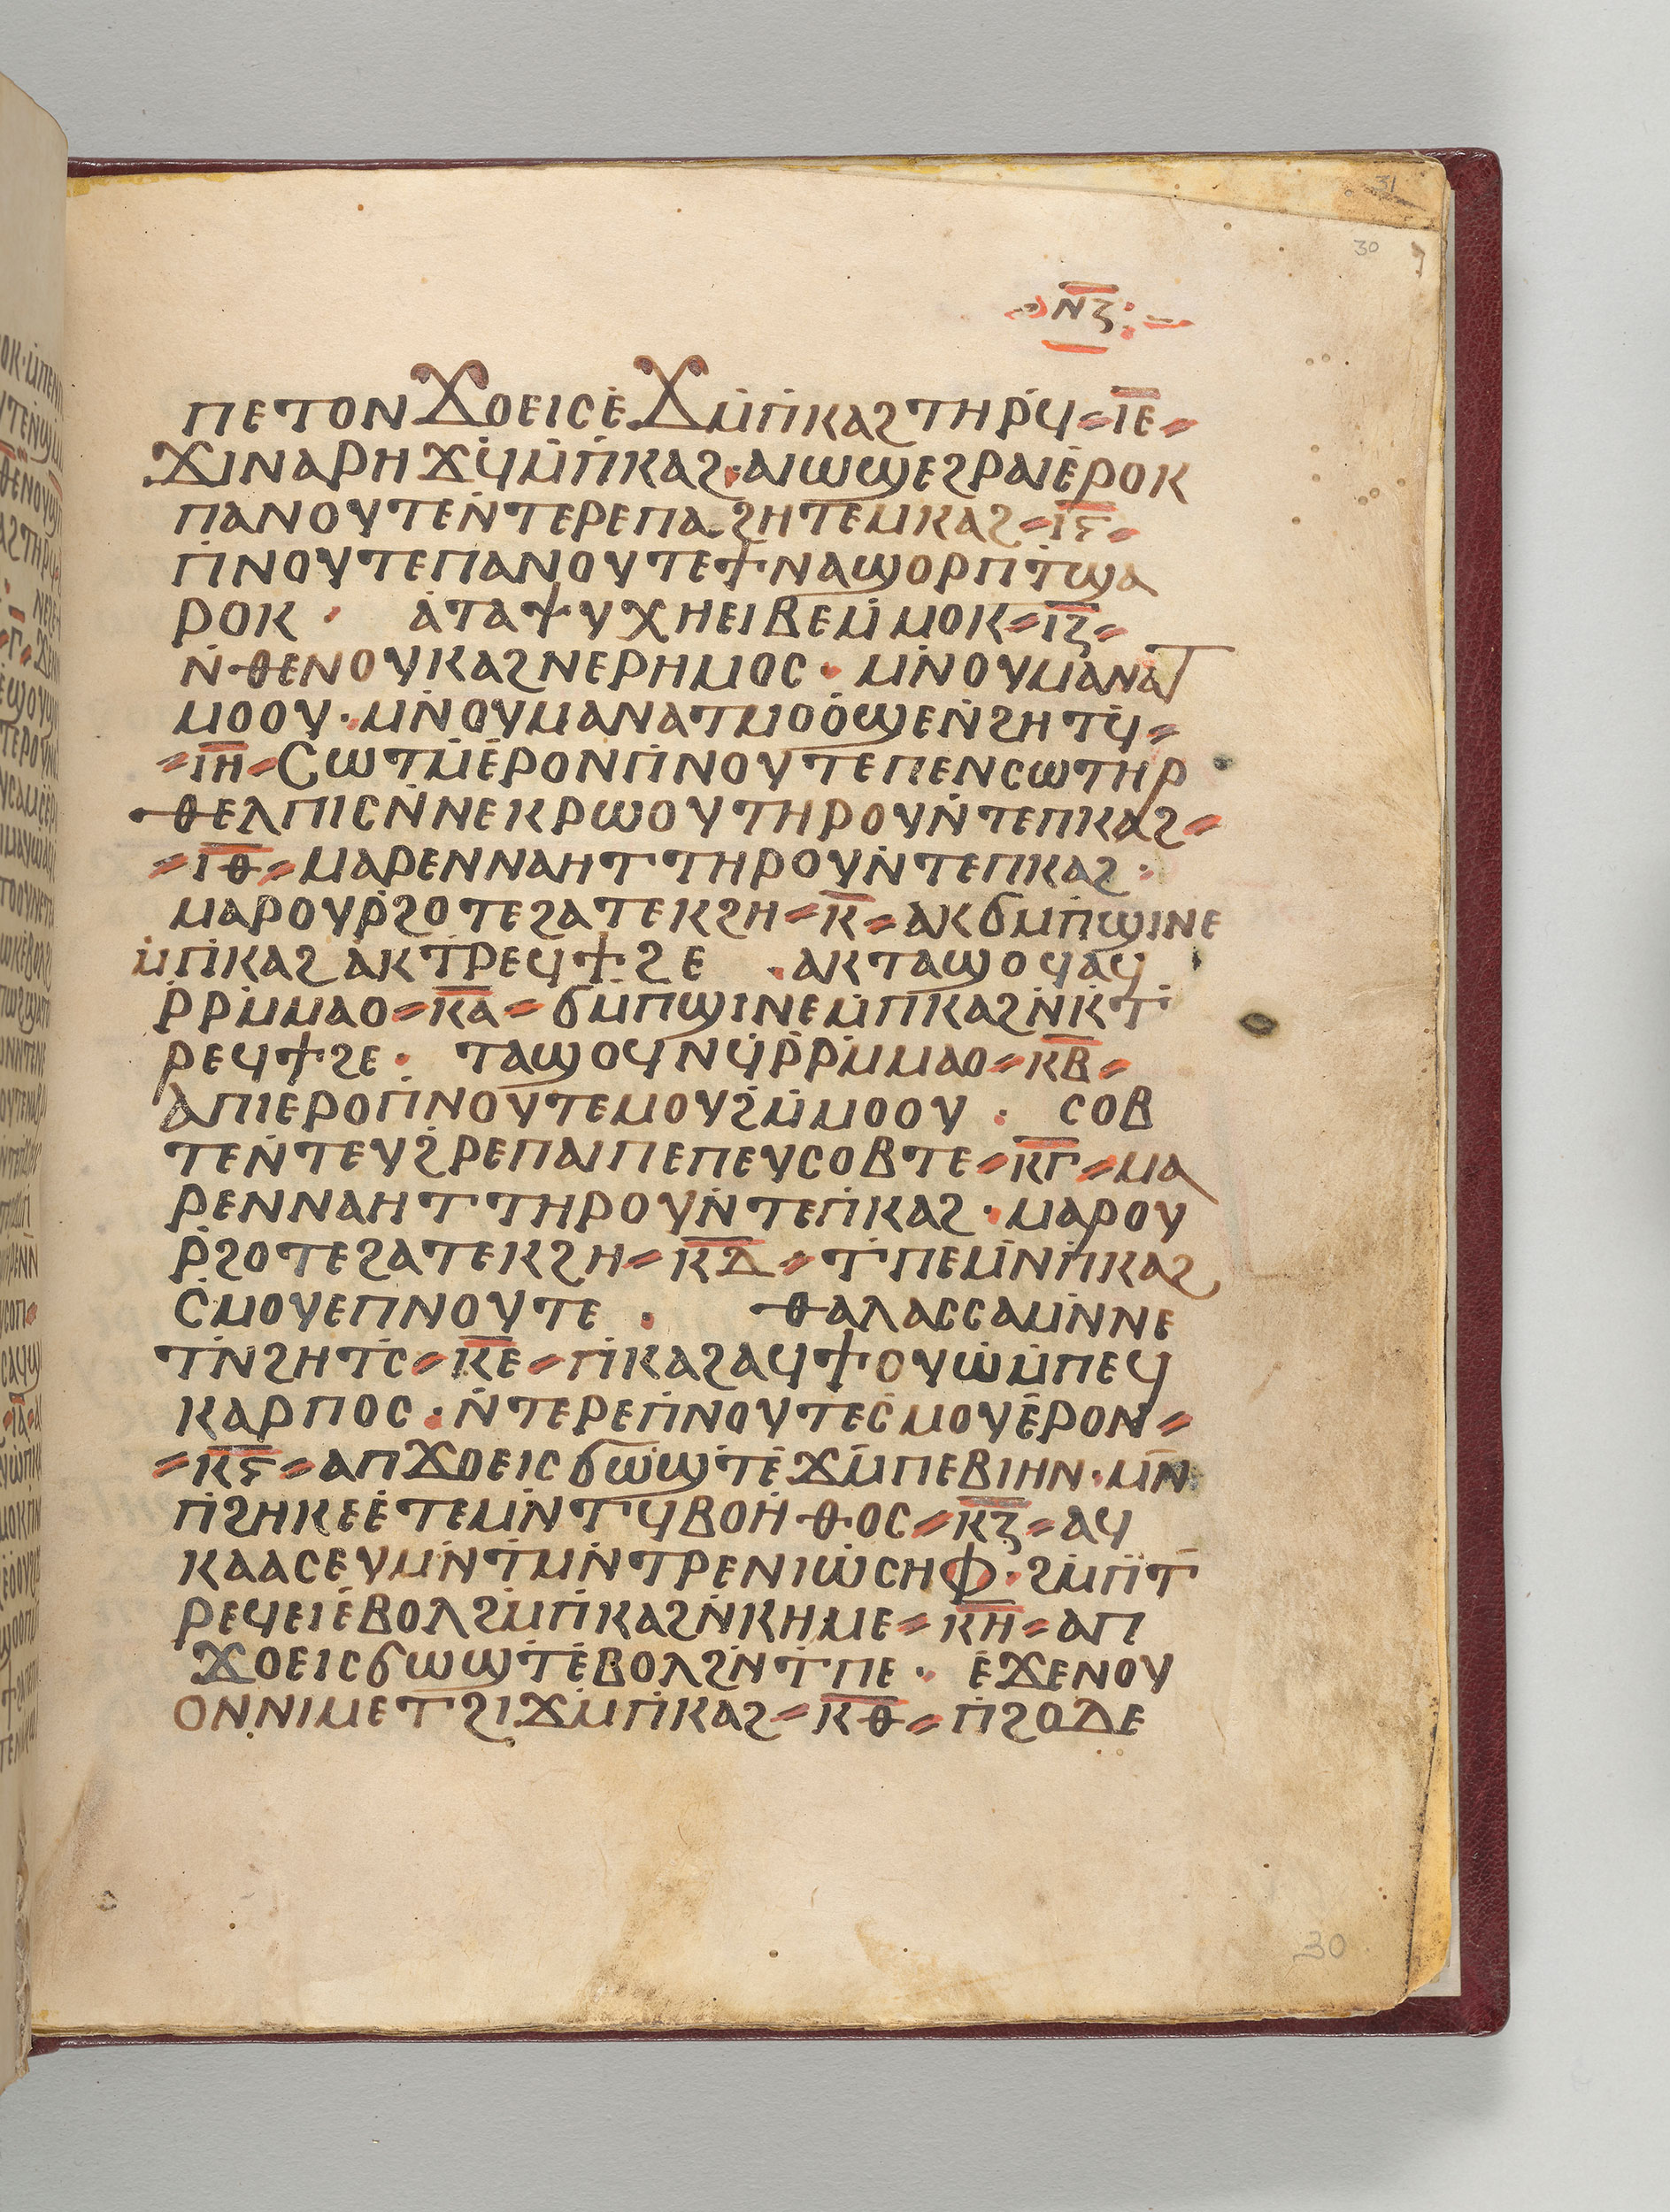 31
30
ⲛ̅ⲍ̅
ⲡⲉⲧⲟⲛϫⲟⲉⲓⲥⲉ̇ϫⲙ̇ⲡ̇ⲕⲁϩⲧⲏⲣ̇ϥ⸗ⲓ̅ⲉ̅⸗
ϫⲓⲛⲁⲣⲏϫϥ̇ⲙ̇ⲡ̇ⲕⲁϩ·ⲁⲓⲱϣⲉϩⲣⲁⲓⲉ̇ⲣⲟⲕ
ⲡⲁⲛⲟⲩⲧⲉⲛ̇ⲧⲉⲣⲉⲡⲁϩⲏⲧⲉⲙⲕⲁϩ⸗ⲓ̅ⲋ̅⸗
ⲡ̇ⲛⲟⲩⲧⲉⲡⲁⲛⲟⲩⲧⲉϯⲛⲁϣⲟⲣⲡⲧ̇ϣⲁ
ⲣⲟⲕ · ⲁ̇ⲧⲁⲯⲩⲭⲏⲉⲓⲃⲉⲙ̇ⲙⲟⲕ⸗ⲓ̅ⲍ̅⸗
ⲛ̇ⲑⲉⲛⲟⲩⲕⲁϩⲛⲉⲣⲏⲙⲟⲥ·ⲙⲛ̇ⲟⲩⲙⲁⲛⲁⲧ
ⲙⲟⲟⲩ·ⲙⲛ̇ⲟⲩⲙⲁⲛⲁⲧⲙⲟⲟ̇ϣⲉⲛ̇ϩⲏⲧϥ̇⸗
⸗ⲓ̅ⲏ̅⸗ⲥⲱⲧⲙ̇ⲉ̇ⲣⲟⲛⲡ̇ⲛⲟⲩⲧⲉⲡⲉⲛⲥⲱⲧⲏⲣ
ⲑⲉⲗⲡⲓⲥⲛ̇ⲛⲉⲕⲣⲱⲟⲩⲧⲏⲣⲟⲩⲛ̇ⲧⲉⲡⲕⲁϩ⸗
⸗ⲓ̅ⲑ̅⸗ⲙⲁⲣⲉⲛⲛⲁⲏⲧⲧⲏⲣⲟⲩⲛ̇ⲧⲉⲡⲕⲁϩ·
ⲙⲁⲣⲟⲩⲣ̇ϩⲟⲧⲉϩⲁⲧⲉⲕϩⲏ⸗ⲕ̅⸗ⲁⲕϭⲙⲡ̇ϣⲓⲛⲉ
ⲙ̇ⲡ̇ⲕⲁϩⲁ̇ⲕⲧⲣⲉϥϯϩⲉ ·ⲁⲕⲧⲁϣⲟϥⲁϥ
ⲣ̇ⲣⲙ̇ⲙⲁⲟ⸗ⲕ̅ⲁ̅⸗ϭⲙ̇ⲡϣⲓⲛⲉⲙ̇ⲡⲕⲁϩⲛ̇ⲕ̇ⲧ̇
ⲣⲉϥϯϩⲉ· ⲧⲁϣⲟϥⲛϥ̇ⲣ̇ⲣⲙ̇ⲙⲁⲟ⸗ⲕ̅ⲃ̅⸗
ⲁⲡⲓⲉⲣⲟⲡ̇ⲛⲟⲩⲧⲉⲙⲟⲩϩ̇ⲙ̇ⲙⲟⲟⲩ · ⲥⲟⲃ
ⲧⲉⲛ̇ⲧⲉⲩϩ̇ⲣⲉⲡⲁⲓⲡⲉⲡⲉⲩⲥⲟⲃⲧⲉ⸗ⲕ̅ⲅ̅⸗ⲙⲁ
ⲣⲉⲛⲛⲁⲏⲧⲧⲏⲣⲟⲩⲛ̇ⲧⲉⲡ̇ⲕⲁϩ·ⲙⲁⲣⲟⲩ
ⲣ̇ϩⲟⲧⲉϩⲁⲧⲉⲕϩⲏ⸗ⲕ̅ⲇ̅⸗ⲧ̇ⲡⲉⲙ̇ⲛⲡ̇ⲕⲁϩ
ⲥ̇ⲙⲟⲩⲉⲡⲛⲟⲩⲧⲉ · ⲑⲁⲗⲁⲥⲥⲁⲙⲛ̇ⲛⲉ
ⲧⲛ̇ϩⲏⲧⲥ̇⸗ⲕ̅ⲉ̅⸗ⲡ̇ⲕⲁϩⲁϥϯⲟⲩⲱ̇ⲙ̇ⲡⲉϥ
ⲕⲁⲣⲡⲟⲥ·ⲛ̇ⲧⲉⲣⲉⲡ̇ⲛⲟⲩⲧⲉⲥ̇ⲙⲟⲩⲉ̇ⲣⲟⲛ⸗
⸗ⲕ̅ⲋ̅⸗ⲁⲡϫⲟⲉⲓⲥϭⲱ̇ϣⲧ̇ⲉ̇ϫⲙ̇ⲡⲉⲃⲓⲏⲛ·ⲙⲛ̇
ⲡ̇ϩⲏⲕⲉⲉ̇ⲧⲉⲙⲛ̇ⲧϥⲃⲟⲏ̇ⲑⲟⲥ⸗ⲕ̅ⲍ̅⸗ⲁϥ
ⲕⲁⲁⲥⲉⲩⲙⲛ̇ⲧ̇ⲙⲛ̇ⲧⲣⲉⲛⲓⲱ̇ⲥⲏⲫ·ϩⲙ̇ⲡ̇ⲧ̇
ⲣⲉϥⲉⲓⲉ̇ⲃⲟⲗϩⲙ̇ⲡ̇ⲕⲁϩⲛ̇ⲕⲏⲙⲉ⸗ⲕ̅ⲏ̅⸗ⲁⲡ
ϫⲟⲉⲓⲥϭⲱϣⲧ̇ⲉ̇ⲃⲟⲗϩⲛ̇ⲧ̇ⲡⲉ· ⲉ̇ϫⲉⲛⲟⲩ
ⲟⲛⲛⲓⲙⲉⲧϩⲓϫⲙ̇ⲡ̇ⲕⲁϩ⸗ⲕ̅ⲑ̅⸗ⲡ̇ϩⲟⲇⲉ
30